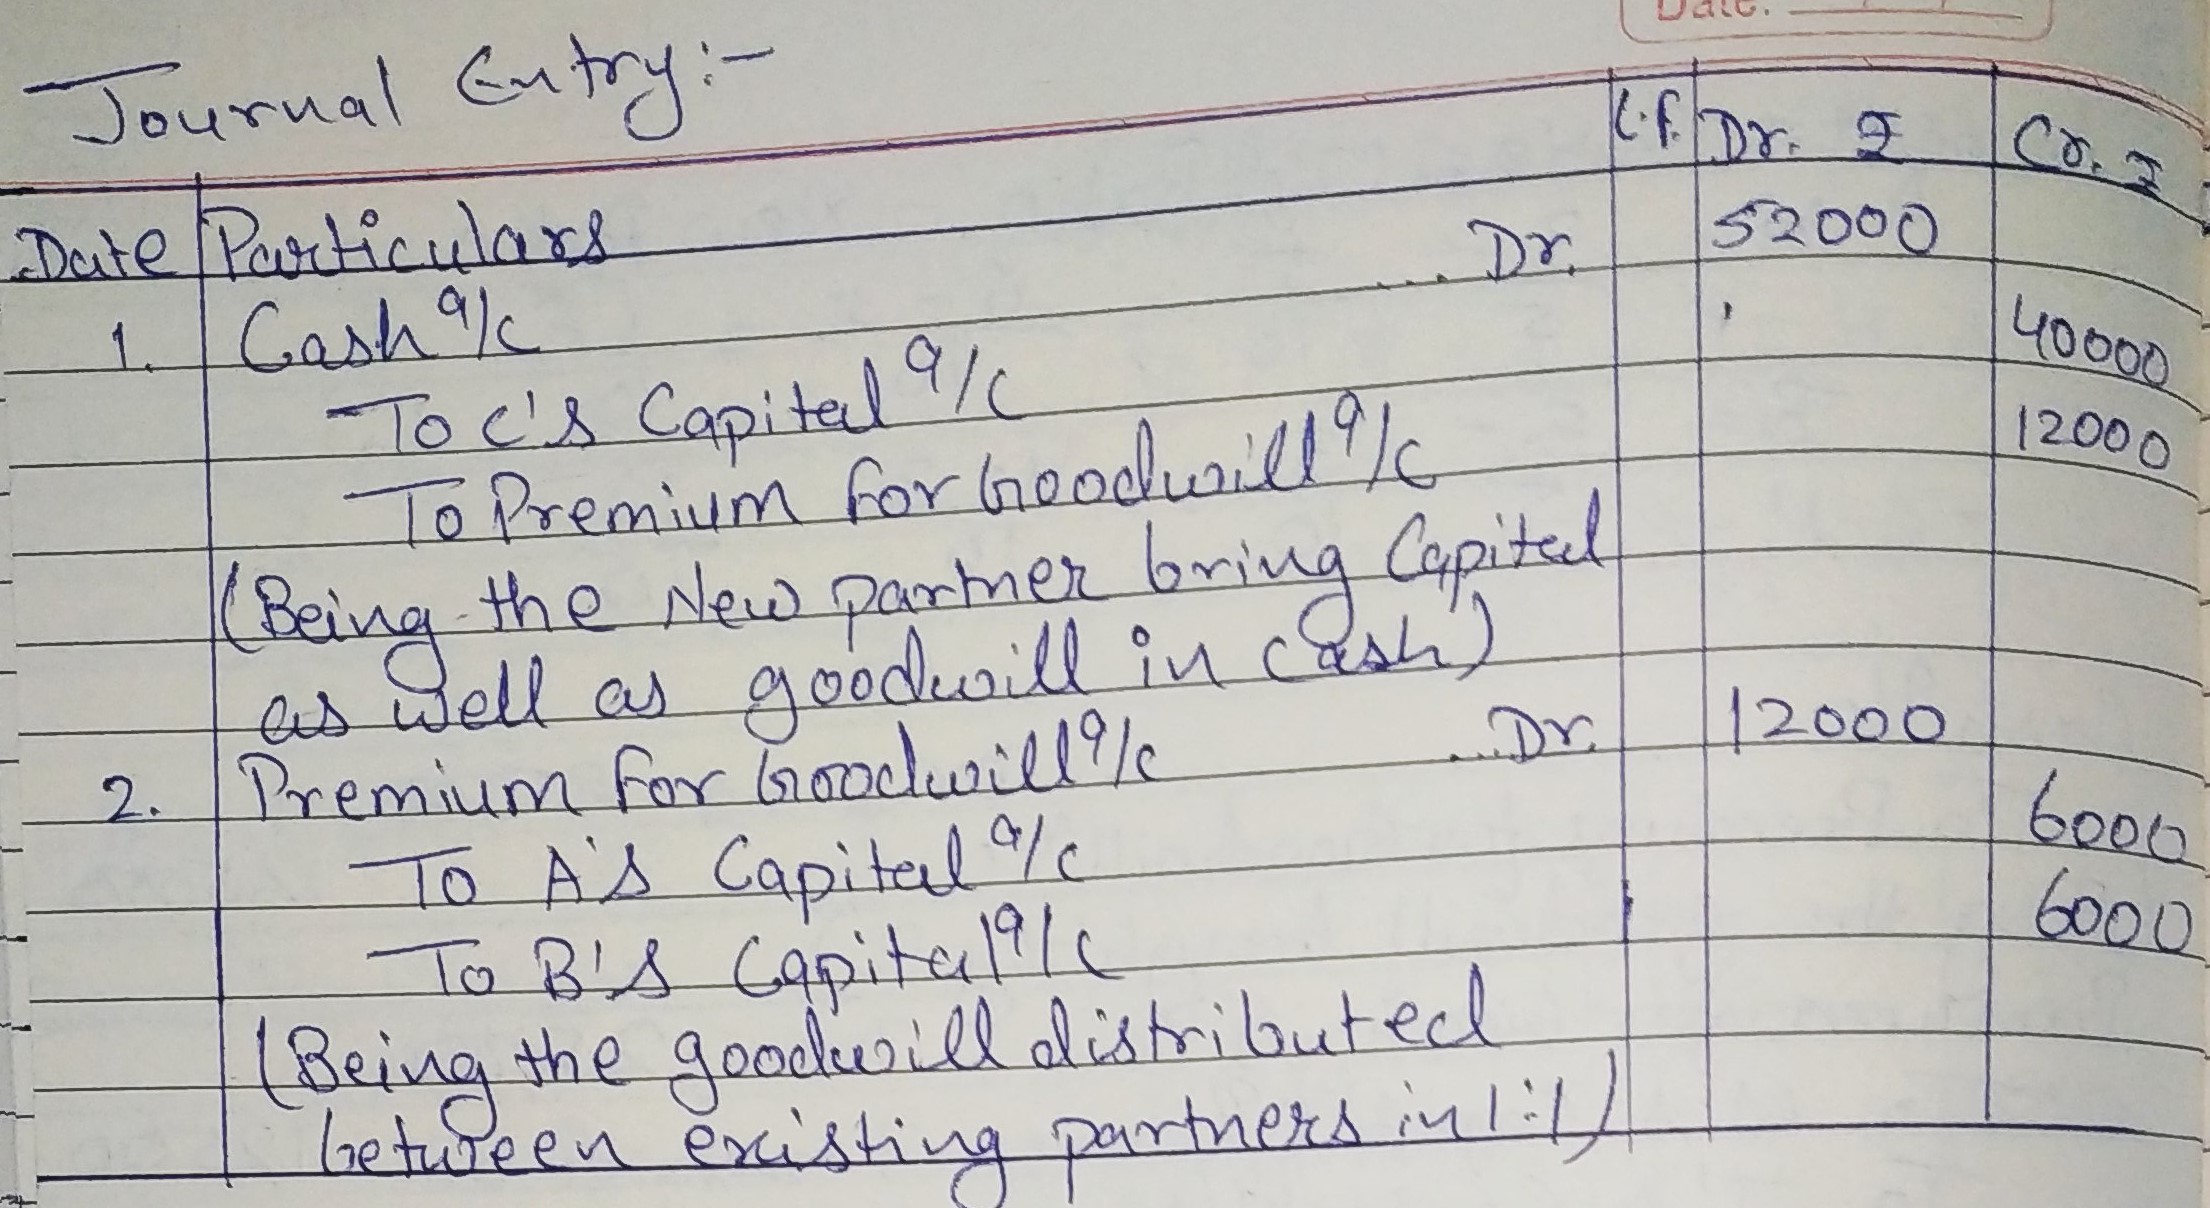 Date:
Journal Entry:-
Date Particulars L.f. Dr. ₹ Cr. ₹
1. Cash a/c .... Dr. 52000
To C's Capital a/c 40000
To Premium for Goodwill a/c 12000
(Being the New partner bring Capital
as well as goodwill in cash)
2. Premium for Goodwill a/c ... Dr. 12000
To A's Capital a/c 6000
To B's Capital a/c 6000
(Being the goodwill distributed
between existing partners in 1:1)